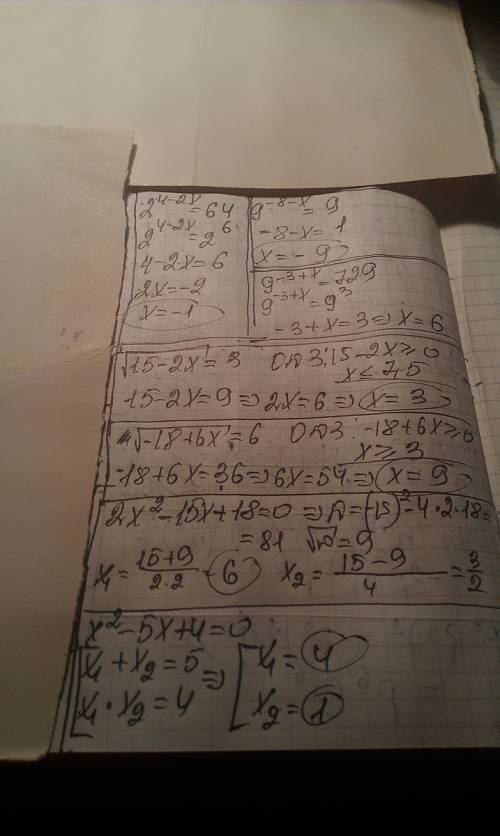 2^{4-2x} = 64
2^{4-2x} = 2^6
4-2x=6
2x=-2
x=-1
9^{-8-x} = 9
-8-x=1
x=-9
9^{-3+x} = 729
9^{-3+x} = 9^3
-3+x=3 => x=6
√15-2x = 3 ОДЗ: 15-2x ≥ 0
x ≤ 7,5
15-2x=9 => 2x=6 => x=3
√-18+6x = 6 ОДЗ: -18+6x ≥ 0
x ≥ 3
-18+6x=36 => 6x=54 => x=9
2x²-15x+18=0 => D=(-15)²-4·2·18=
=81 √D=9
x₁ = (15+9)/(2·2) = 6 x₂ = (15-9)/4 = 3/2
x²-5x+4=0
[x₁+x₂=5 => [x₁=4
x₁·x₂=4 x₂=1